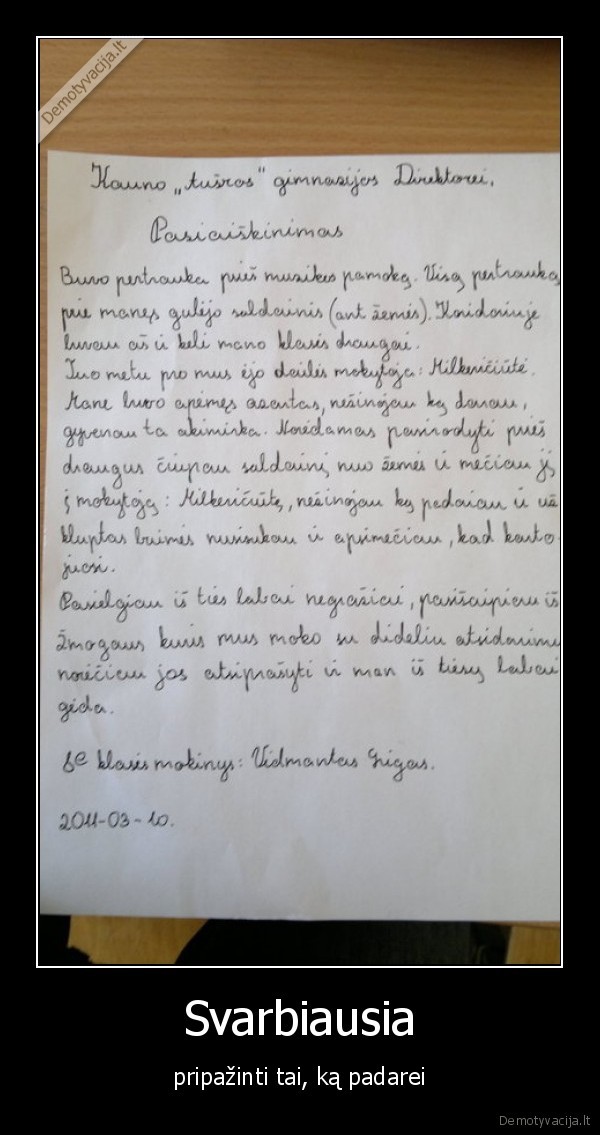 Demotyvacija.lt
Kauno „Aušros" gimnazijos Direktorei.
Pasiaiškinimas
Buvo pertrauka prieš muzikos pamoką. Visą pertrauką
prie manęs gulėjo saldainis (ant žemės). Koridoriuje
buvau aš ir keli mano klasės draugai.
Tuo metu pro mus ėjo dailės mokytoja: Milkevičiūtė.
Mane buvo apėmęs azartas, nežinojau ką darau,
gyvenau ta akimirka. Norėdamas pasirodyti prieš
draugus čiupau saldainį nuo žemės ir mečiau jį
į mokytoją: Milkevičiūtę, nežinojau ką padariau ir už
kluptas baimės nusisukau ir apsimečiau, kad karto-
juosi.
Pasielgiau iš ties labai negražiai, pasišaipiau iš
žmogaus kuris mus moko su dideliu atsidavimu
norėčiau jos atsiprašyti ir man iš tiesų labai
gėda.
6e klasės mokinys: Vidmantas Grigas.
2011-03-10.
Svarbiausia
pripažinti tai, ką padarei
Demotyvacija.lt